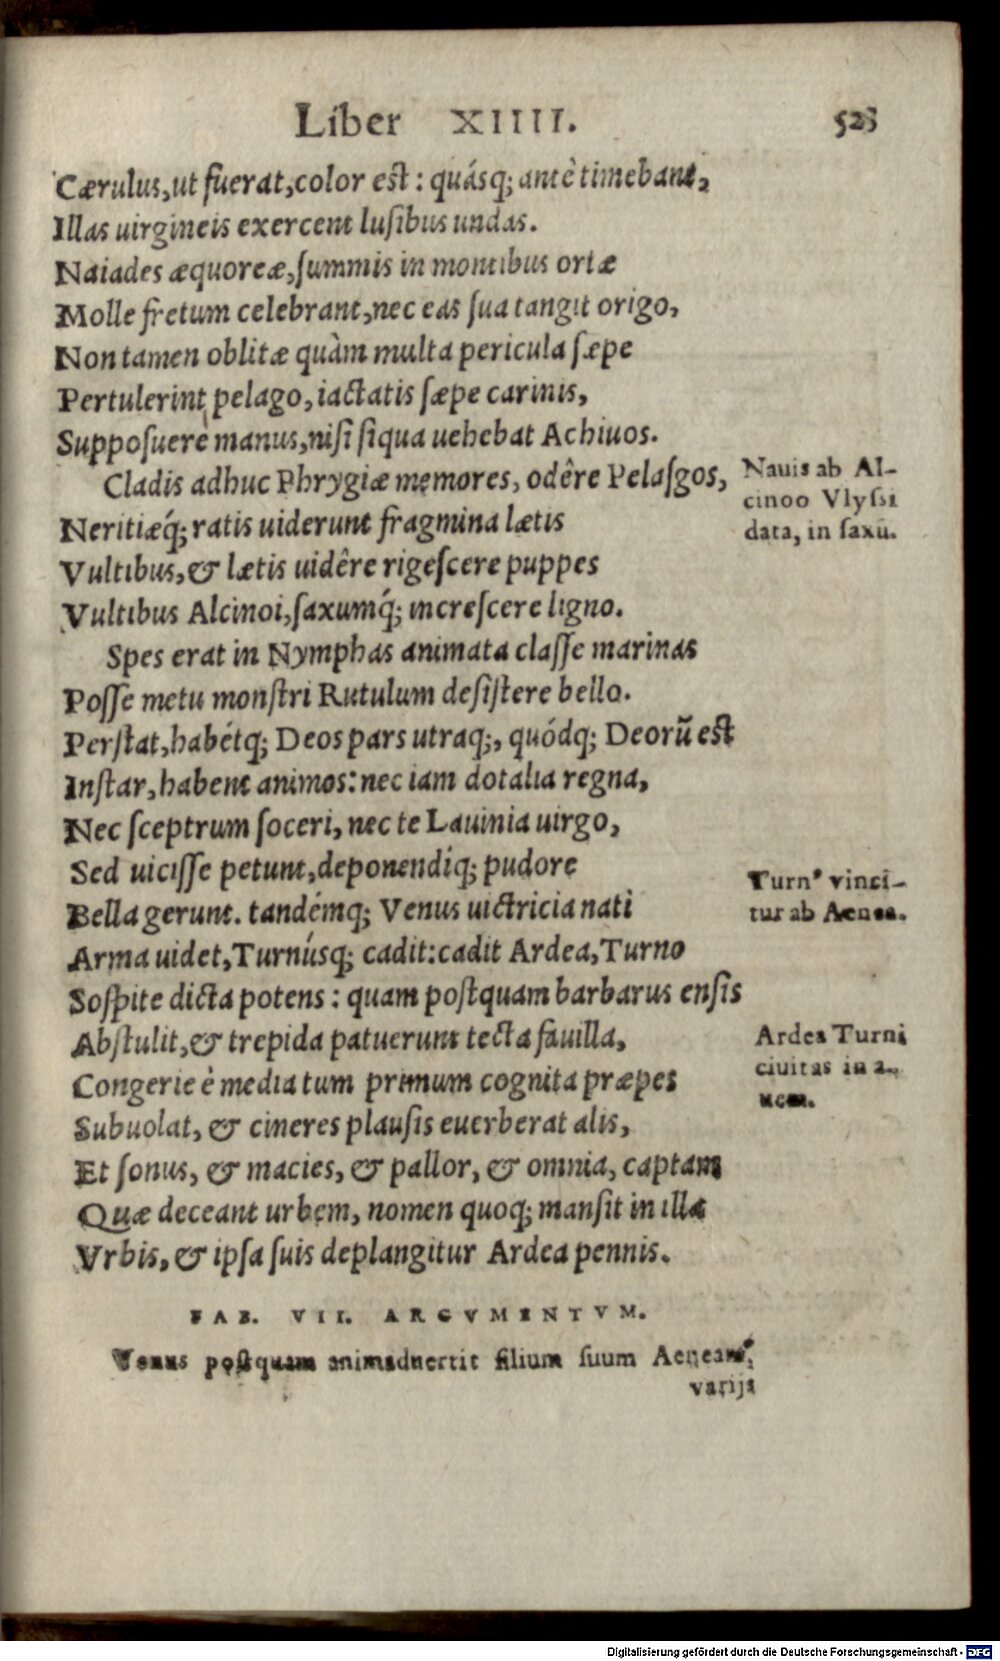 Liber XIIII. 528
Cærulus, ut fuerat, color est: quásq; antè timebant,
Illas uirgineis exercent lusibus undas.
Naiades æquoreæ, summis in montibus ortæ
Molle fretum celebrant, nec eas sua tangit origo,
Non tamen oblitæ quàm multa pericula sæpe
Pertulerint pelago, iactatis sæpe carinis,
Supposuere manus, nisi siqua uehebat Achiuos.
Cladis adhuc Phrygiæ memores, odêre Pelasgos,
Neritiæq́; ratis uiderunt fragmina lætis
Vultibus, & lætis uidêre rigescere puppes
Vultibus Alcinoi, saxumq́; increscere ligno.
Nauis ab Al-
cinoo Vlyssi
data, in saxū.
Spes erat in Nymphas animata classe marinas
Posse metu monstri Rutulum desistere bello.
Perstat, habétq; Deos pars utraq;, quódq; Deorū est
Instar, habent animos: nec iam dotalia regna,
Nec sceptrum soceri, nec te Lauinia uirgo,
Sed uicisse petunt, deponendiq; pudore
Bella gerunt. tandémq; Venus uictricia nati
Arma uidet, Turnúsq; cadit: cadit Ardea, Turno
Turn⁹ vinci-
tur ab Aenea.
Sospite dicta potens: quam postquam barbarus ensis
Abstulit, & trepida patuerunt tecta fauilla,
Congerie è media tum primum cognita præpes
Subuolat, & cineres plausis euerberat alis,
Ardea Turni
ciuitas in a-
uem.
Et sonus, & macies, & pallor, & omnia, captam
Quæ deceant urbem, nomen quoq; mansit in illa
Vrbis, & ipsa suis deplangitur Ardea pennis.
FAB. VII. ARGVMENTVM.
Venus postquam animaduertit filium suum Aeneam,
varijs
Digitalisierung gefördert durch die Deutsche Forschungsgemeinschaft - DFG